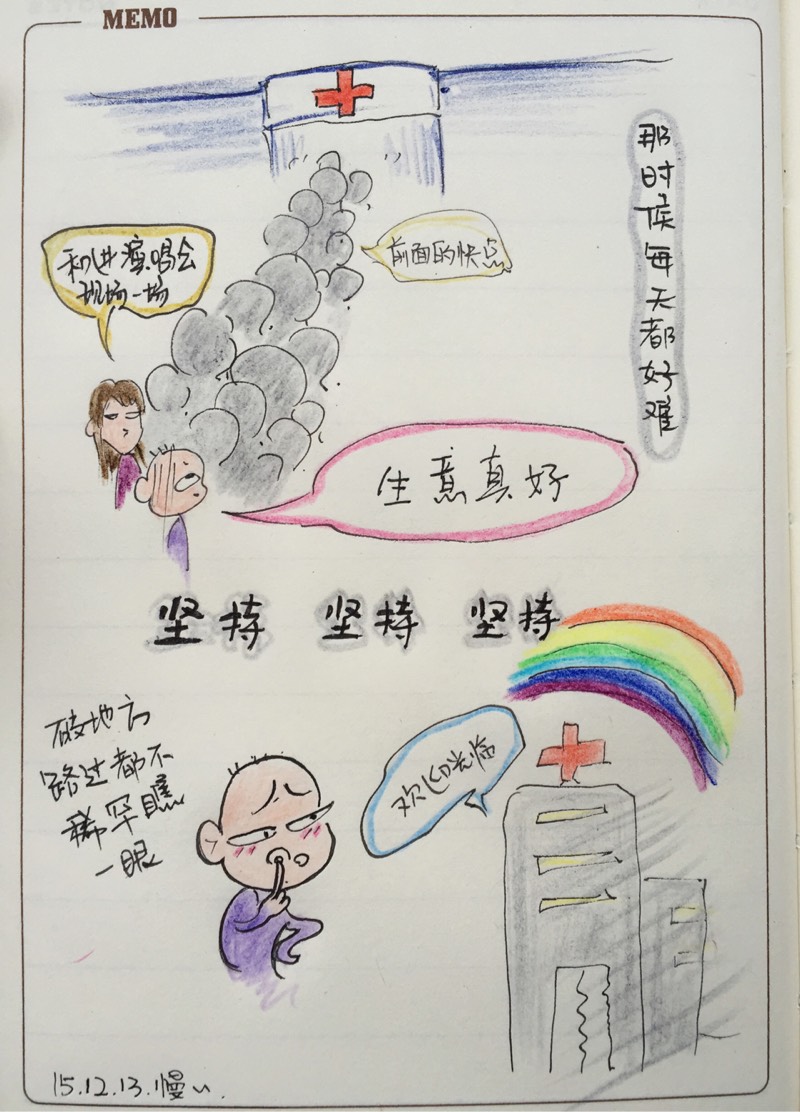 MEMO
那时候每天都好难
前面的快点
和进演唱会
现场一场
生意真好
坚持 坚持 坚持
破地方
路过都不
稀罕瞧
一眼
欢迎光临
15.12.13.慢